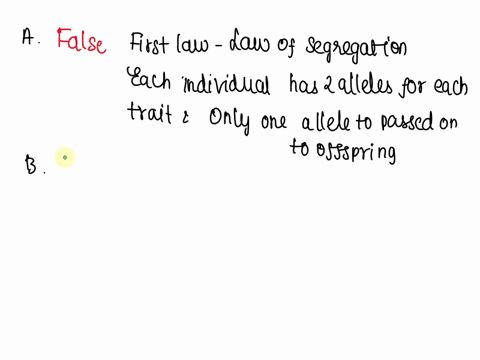 A. False First law - Law of segregation
Each individual has 2 alleles for each
trait & Only one allele to passed on
to offspring
B.